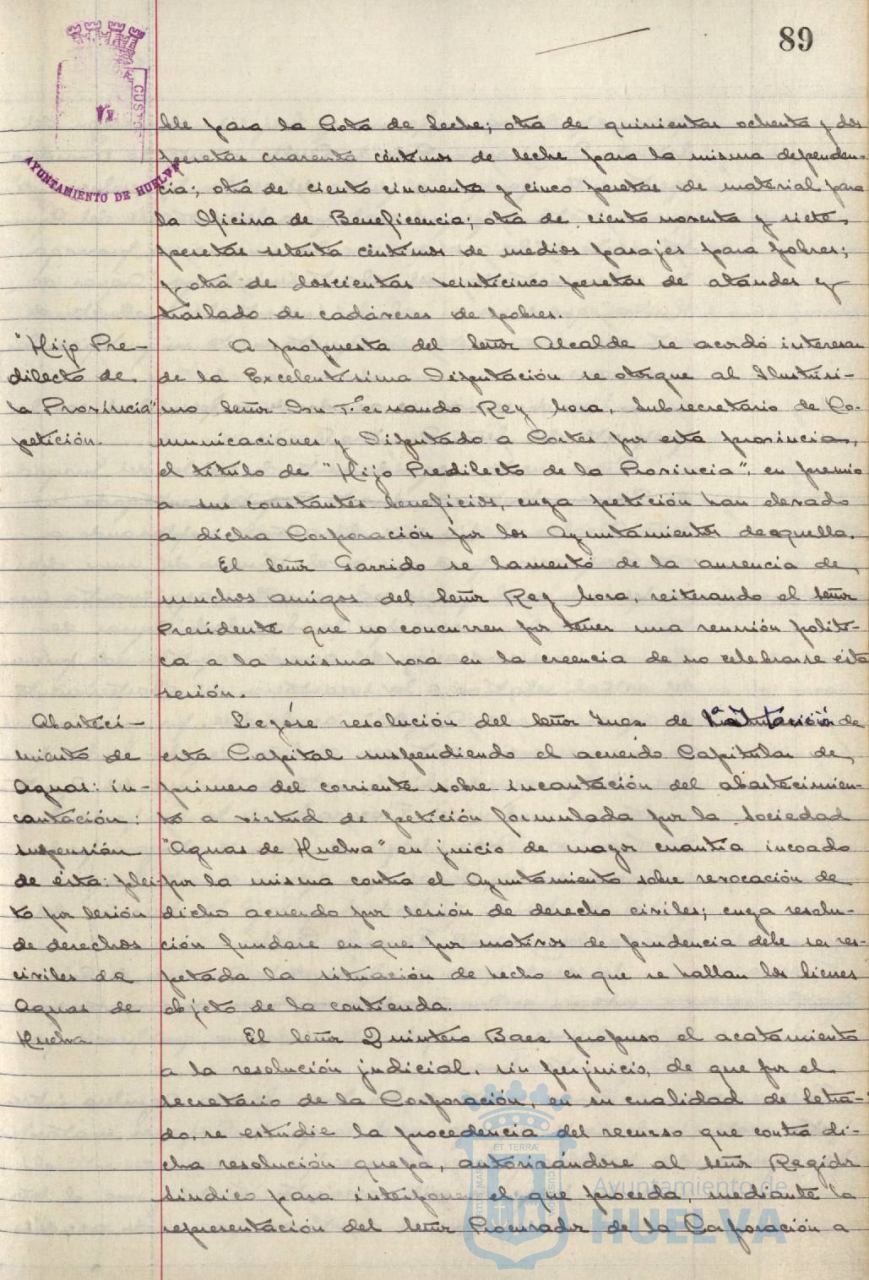 89
CUSTO
AYUNTAMIENTO DE HUELVA
ble para la Gota de Leche; otra de quinientas ochenta y dos
pesetas cuarenta céntimos de leche para la misma dependen-
cia; otra de ciento cincuenta y cinco pesetas de material para
la Oficina de Beneficencia; otra de ciento noventa y siete
pesetas setenta céntimos de medios pasajes para pobres;
y otra de doscientas veinticinco pesetas de ataudes y
traslado de cadáveres de pobres.
"Hijo Pre-
dilecto de
la Provincia"
petición.
A propuesta del Señor Alcalde se acordó interesar
de la Excelentísima Diputación se otorgue al Ilustrísi-
mo Señor Don Fernando Rey Mora, Subsecretario de Co-
municaciones y Diputado a Cortes por esta provincia,
el título de "Hijo Predilecto de la Provincia", en premio
a sus constantes beneficios, cuya petición han elevado
a dicha Corporación por los Ayuntamientos de aquella.
El Señor Garrido se lamentó de la ausencia de
muchos amigos del Señor Rey Mora, reiterando el Señor
Presidente que no concurren por tener una reunión políti-
ca a la misma hora en la creencia de no celebrarse esta
sesión.
Abasteci-
miento de
Aguas: in-
cautación:
suspensión
de ésta: plei-
to por lesión
de derechos
civiles de
Aguas de
Huelva
Leyóse resolución del Señor Juez de 1ª Instancia de
esta Capital suspendiendo el acuerdo Capitular de
primero del corriente sobre incautación del abastecimien-
to a virtud de petición formulada por la Sociedad
"Aguas de Huelva" en juicio de mayor cuantía incoado
por la misma contra el Ayuntamiento sobre revocación de
dicho acuerdo por lesión de derecho civiles; cuya resolu-
ción fundase en que por motivos de prudencia debe ser res-
petada la situación de hecho en que se hallan los bienes
objeto de la contienda.
El Señor Quintero Baez propuso el acatamiento
a la resolución judicial, sin perjuicio, de que por el
secretario de la Corporación, en su cualidad de letra-
do, se estudie la procedencia del recurso que contra di-
cha resolución quepa, autorizándose al Señor Regidor
Síndico para interponer el que proceda, mediante la
representación del Señor Procurador de la Corporación a
ET TERRÆ
Ayuntamiento de
HUELVA